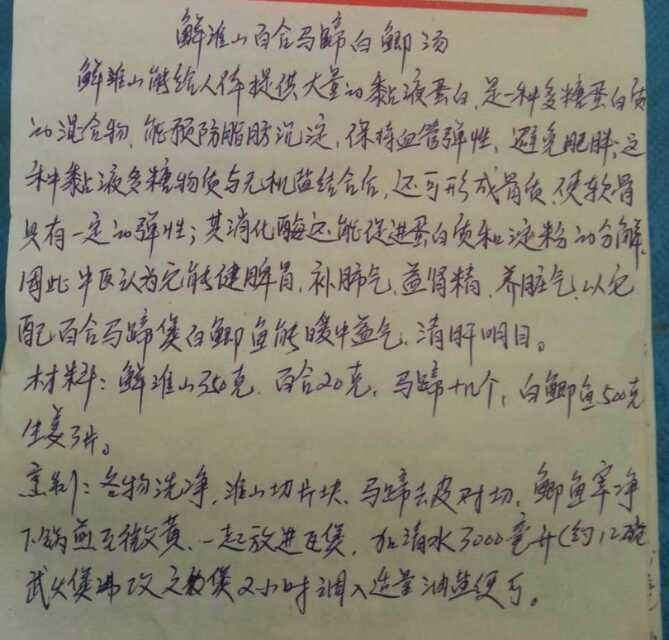 鲜淮山百合马蹄白鲫汤
鲜淮山能给人体提供大量的黏液蛋白,是一种多糖蛋白质
的混合物,能预防脂肪沉淀,保持血管弹性,避免肥胖;这
种黏液多糖物质与无机盐结合后,还可形成骨质,使软骨
具有一定的弹性;其消化酶还能促进蛋白质和淀粉的分解。
因此中医认为它能健脾胃、补肺气、益肾精、养脏气,以它
配百合马蹄煲白鲫鱼能暖中益气、清肝明目。
材料:鲜淮山350克、百合20克、马蹄十几个,白鲫鱼500克
生姜3片。
烹制:各物洗净,淮山切片块、马蹄去皮对切,鲫鱼宰净
下锅煎至微黄、一起放进瓦煲,加清水3000毫升(约12碗
武火煲沸改文火煲2小时调入适量油盐便可。